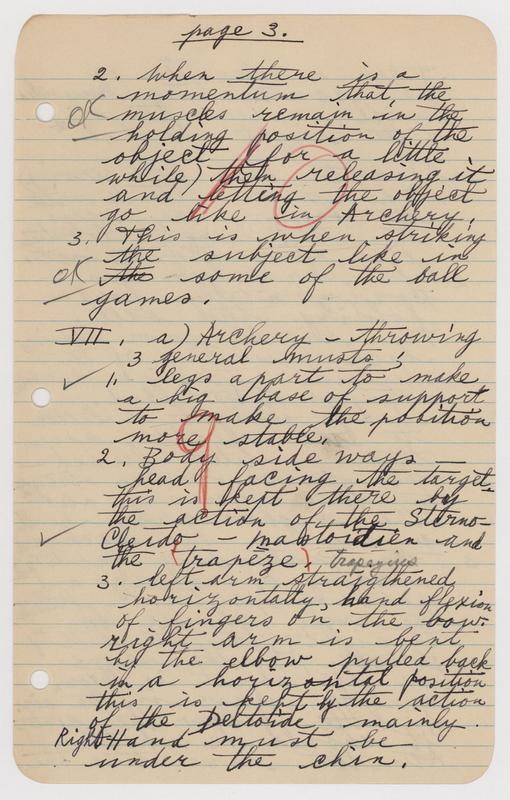 page 3.
2. When there is a
momentum that the
OK muscles remain in the
holding position of the
object (for a little
while) then releasing it
and letting the object
go like in Archery.
10
3. This is when striking
the subject like in
OK the some of the ball
games.
VII. a) Archery - throwing
3 general musts;
✓ 1. legs apart to make
a big base of support
to make the position
more stable.
9
2. Body side ways -
head facing the target
this is kept there by
the action of the Sterno-
✓ Cleido - mastoidien and
the (trapeze). trapezius
3. left arm straigthened
horizontally, hand flexion
of fingers on the bow.
right arm is bent
by the elbow pulled back
in a horizontal position
this is kept by the action
of the Deltoide mainly.
Right Hand must be
under the chin.